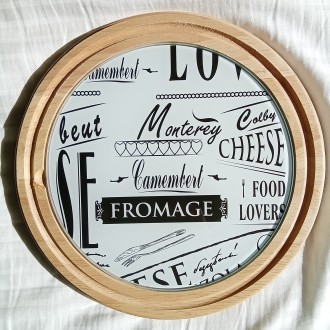 LOV
Camembert
beut
Monterey
Colby
CHEESE
SE
Camembert
FOOD
LOVERS
FROMAGE
SE